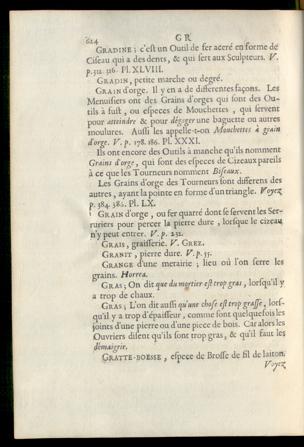 624 G R
GRADINE; c'est un Outil de fer aceré en forme de
Ciseau qui a des dents, & qui sert aux Sculpteurs. V.
p. 312. 316. Pl. XLVIII.
GRADIN, petite marche ou degré.
GRAIN d'orge. Il y en a de differentes façons. Les
Menuisiers ont des Grains d'orges qui sont des Ou-
tils à fust, ou especes de Mouchettes, qui servent
pour atteindre & pour dégager une baguette ou autres
moulures. Aussi les appelle-t-on Mouchettes à grain
d'orge. V. p. 178. 186. Pl. XXXI.
Ils ont encore des Outils à manche qu'ils nomment
Grains d'orge, qui sont des especes de Cizeaux pareils
à ce que les Tourneurs nomment Biseaux.
Les Grains d'orge des Tourneurs sont differens des
autres, ayant la pointe en forme d'un triangle. Voyez
p. 384. 386. Pl. LX.
GRAIN d'orge, ou fer quarré dont se servent les Ser-
ruriers pour percer la pierre dure, lorsque le cizeau
n'y peut entrer. V. p. 232.
GRAIS, graisserie. V. GREZ.
GRANIT, pierre dure. V. p. 55.
GRANGE d'une metairie; lieu où l'on serre les
grains. Horrea.
GRAS; On dit que du mortier est trop gras, lorsqu'il y
a trop de chaux.
GRAS; L'on dit aussi qu'une chose est trop grasse, lors-
qu'il y a trop d'épaisseur, comme sont quelquefois les
joints d'une pierre ou d'une piece de bois. Car alors les
Ouvriers disent qu'ils sont trop gras, & qu'il faut les
démaigrir.
GRATTE-BOESSE, espece de Brosse de fil de laiton.
Voyez